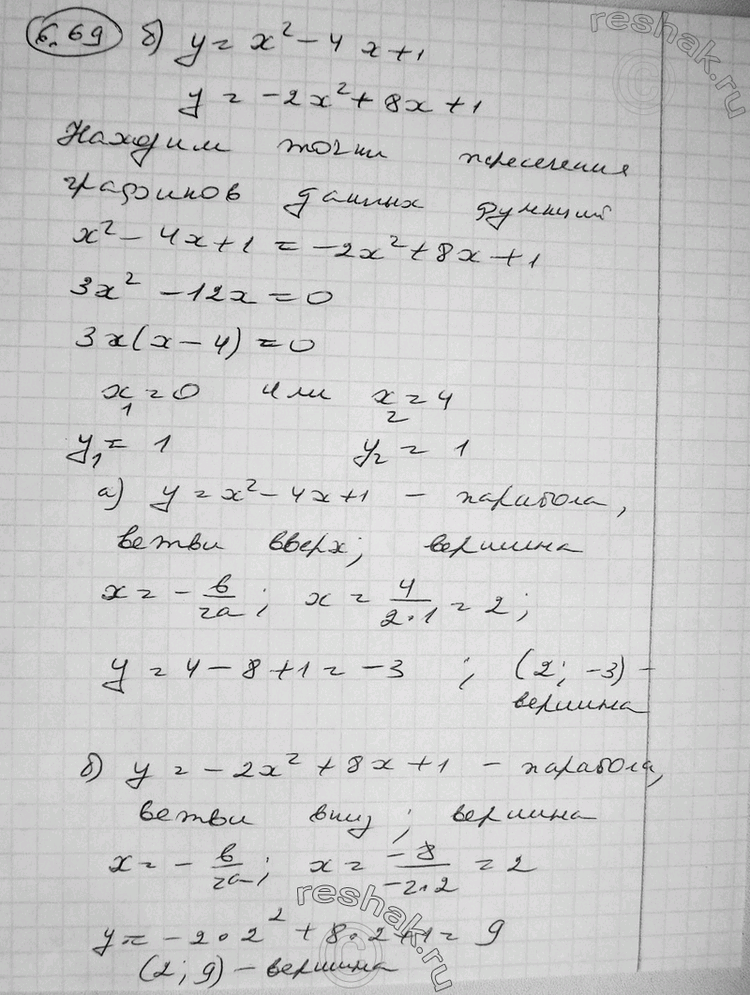 6.69 б) y = x² - 4x + 1
y = -2x² + 8x + 1
Находим точки пересечения
графиков данных функций
x² - 4x + 1 = -2x² + 8x + 1
3x² - 12x = 0
3x(x - 4) = 0
x₁ = 0 или x₂ = 4
y₁ = 1 y₂ = 1
а) y = x² - 4x + 1 - парабола,
ветви вверх; вершина
x = -в/2a; x = 4/2·1 = 2;
y = 4 - 8 + 1 = -3 ; (2; -3) -
вершина
б) y = -2x² + 8x + 1 - парабола,
ветви вниз; вершина
x = -в/2a; x = -8/-2·2 = 2
y = -2·2² + 8·2 + 1 = 9
(2; 9) - вершина
reshak.ru
reshak.ru